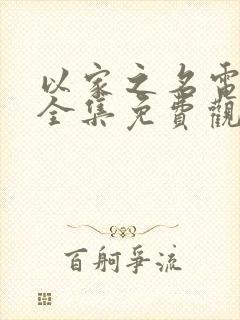 以家之名電
全集免費觀
百舸爭流